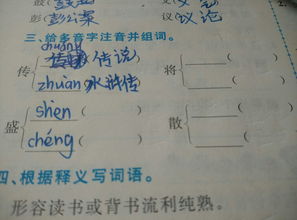 彭(彭公案 议(议论
三、给多音字注音并组词。
chuán 传说)
传 将 ( )
zhuàn 水浒传 ( )
shèn ( ) ( )
盛 散
chéng ( ) ( )
四、根据释义写词语。
形容读书或背书流利纯熟。